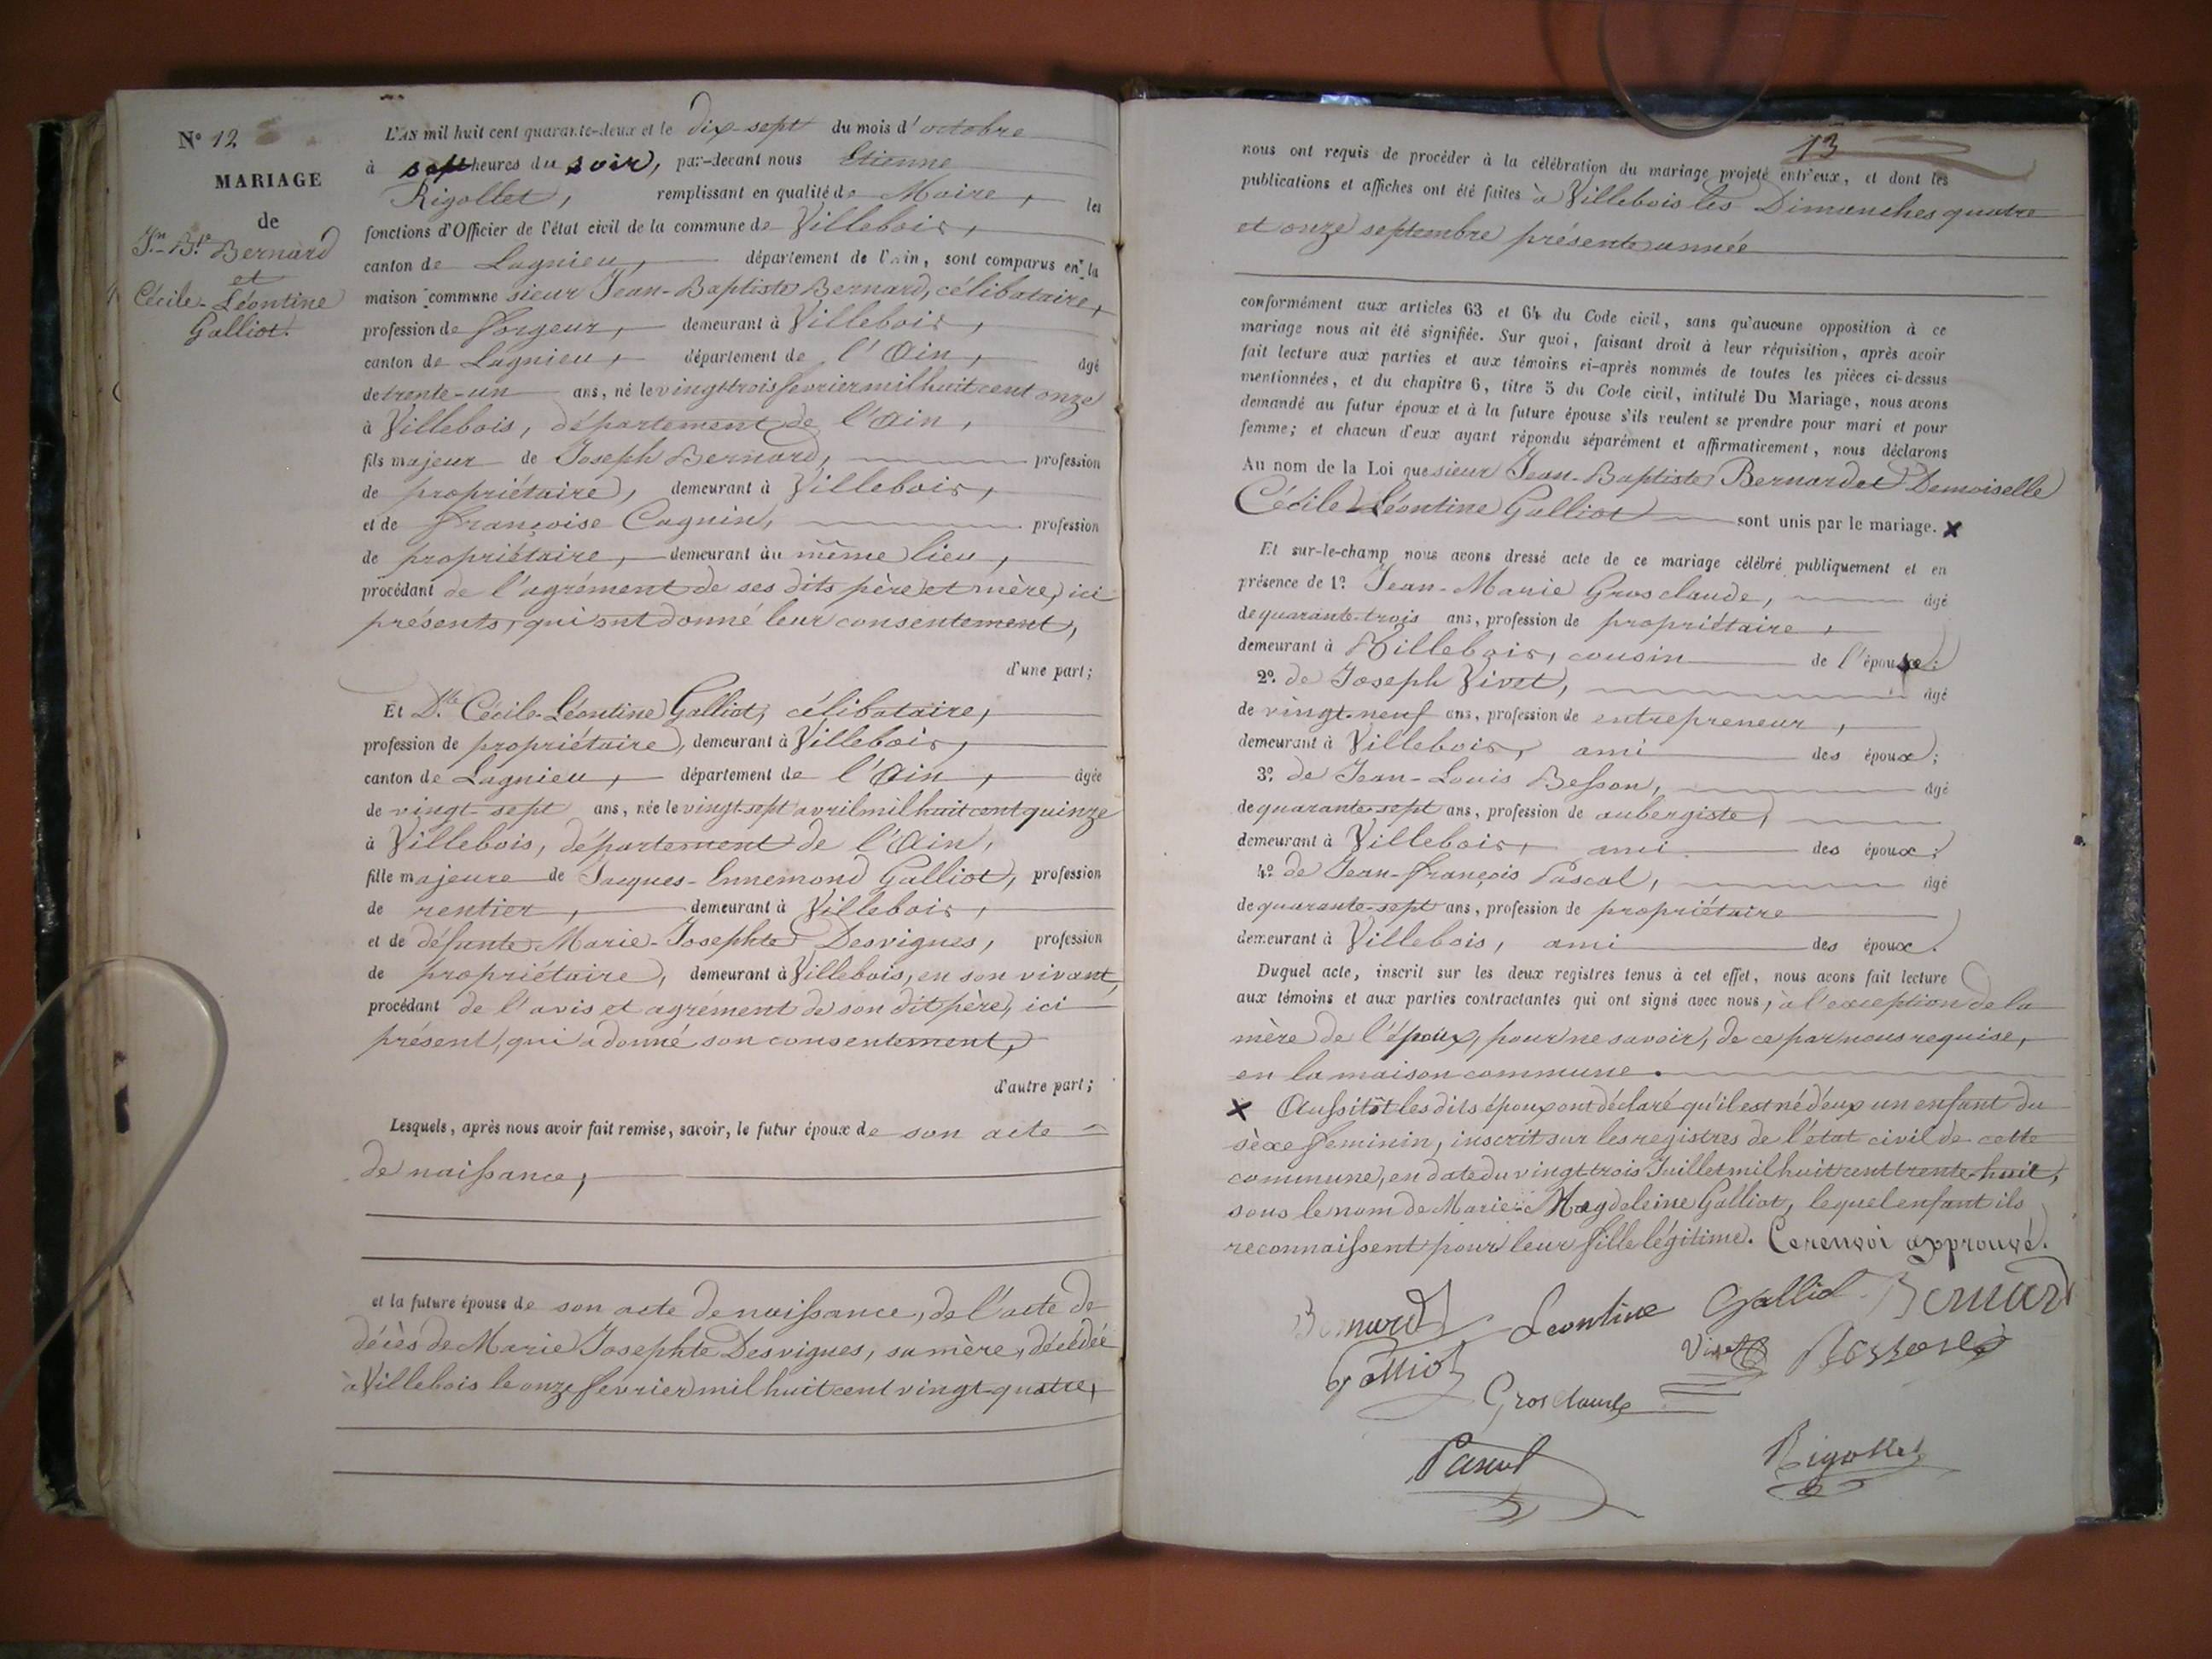 N° 12
MARIAGE
de
Jn-Bte Bernard
et
Cécile-Léontine
Galliot.
L'AN mil huit cent quarante-deux et le dix-sept du mois d'octobre
à sept heures du soir, par-devant nous Etienne
Rigollet, remplissant en qualité de Maire, les
fonctions d'Officier de l'état civil de la commune de Villebois,
canton de Lagnieu, département de l'Ain, sont comparus en la
maison commune sieur Jean-Baptiste Bernard, célibataire,
profession de forgeur, demeurant à Villebois,
canton de Lagnieu, département de l'Ain, âgé
de trente-un ans, né le vingt-trois fevrier mil huit cent onze
à Villebois, département de l'Ain,
fils majeur de Joseph Bernard, profession
de propriétaire, demeurant à Villebois,
et de françoise Cagnin, profession
de propriétaire, demeurant au même lieu,
procédant de l'agrément de ses dits père et mère, ici
présents, qui ont donné leur consentement,
d'une part;
Et Dlle Cécile-Léontine Galliot, célibataire,
profession de propriétaire, demeurant à Villebois,
canton de Lagnieu, département de l'Ain, âgée
de vingt-sept ans, née le vingt-sept avril mil huit cent quinze
à Villebois, département de l'Ain,
fille majeure de Jacques-Ennemond Galliot, profession
de rentier, demeurant à Villebois,
et de défunte Marie-Josephte Desvignes, profession
de propriétaire, demeurant à Villebois, en son vivant,
procédant de l'avis et agrément de son dit père, ici
présent, qui a donné son consentement,
d'autre part;
Lesquels, après nous avoir fait remise, savoir, le futur époux de son acte
de naissance,
et la future épouse de son acte de naissance, de l'acte de
décès de Marie Josephte Desvignes, sa mère, décédée
à Villebois le onze fevrier mil huit cent vingt-quatre,
13
nous ont requis de procéder à la célébration du mariage projeté entr'eux, et dont les
publications et affiches ont été faites à Villebois les Dimanches quatre
et onze septembre présente année
conformément aux articles 63 et 64 du Code civil, sans qu'aucune opposition à ce
mariage nous ait été signifiée. Sur quoi, faisant droit à leur réquisition, après avoir
fait lecture aux parties et aux témoins ci-après nommés de toutes les pièces ci-dessus
mentionnées, et du chapitre 6, titre 5 du Code civil, intitulé Du Mariage, nous avons
demandé au futur époux et à la future épouse s'ils veulent se prendre pour mari et pour
femme; et chacun d'eux ayant répondu séparément et affirmativement, nous déclarons
Au nom de la Loi que sieur Jean-Baptiste Bernard et Demoiselle
Cécile Léontine Galliot sont unis par le mariage. X
Et sur-le-champ nous avons dressé acte de ce mariage célébré publiquement et en
présence de 1° Jean-Marie Grosclaude, âgé
de quarante-trois ans, profession de propriétaire,
demeurant à Villebois, cousin de l'épouse;
2° de Joseph Vivet, âgé
de vingt-neuf ans, profession de entrepreneur,
demeurant à Villebois, ami des époux;
3° de Jean-Louis Besson, âgé
de quarante-sept ans, profession de aubergiste,
demeurant à Villebois, ami des époux;
4° de Jean-françois Pascal, âgé
de quarante-sept ans, profession de propriétaire
demeurant à Villebois, ami des époux.
Duquel acte, inscrit sur les deux registres tenus à cet effet, nous avons fait lecture
aux témoins et aux parties contractantes qui ont signé avec nous, à l'exception de la
mère de l'époux, pour ne savoir, de ce par nous requise,
en la maison commune.
X Aussitôt les dits époux ont déclaré qu'il est né d'eux un enfant du
sèxe feminin, inscrit sur les registres de l'état civil de cette
commune, en date du vingt-trois Juillet mil huit cent trente-huit,
sous le nom de Marie-Magdeleine Galliot, lequel enfant ils
reconnaissent pour leur fille légitime. Ce renvoi approuvé.
Bernard Léontine Galliot Bernard
Galliot Vivet Besson
Grosclaude
Pascal Rigollet